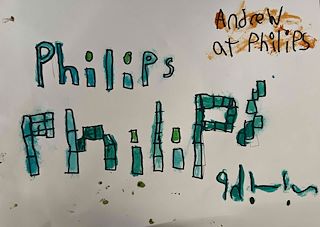 Andrew
at Philips
Philips
Philips